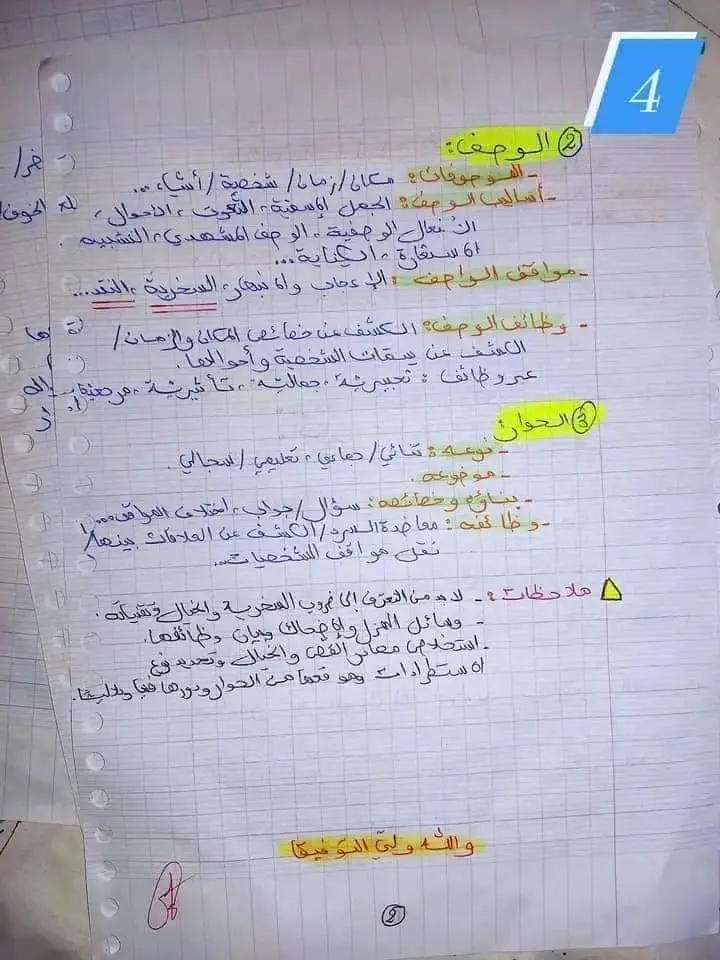 4
② الوصف:
- الموصوفات: مكان/زمان/ شخصية/أشياء...
- أساليب الوصف: الجمل الاسمية، النّعوت، الأحوال،
الأفعال الوصفية، الوصف المشهدي، التشبيه،
الاستعارة، الكناية...
- مواقف الواصف: الإعجاب والانبهار، السخرية، النقد...
- وظائف الوصف: الكشف عن خصائص المكان والزمان/
الكشف عن سمات الشخصية وأحوالها.
عبر وظائف: تعبيريّة، جماليّة، تأثيريّة، مرجعيّة...
③ الحوار:
- نوعه: ثنائي/ جماعي، تعليمي/سجالي.
- موضوعه.
- بناؤه وخصائصه: سؤال/جواب، اختلاف المواقف...
- وظائفه: معاضدة السرد/الكشف عن العلاقات بينها/
نقل مواقف الشخصيات...
ملاحظات: - لابد من التعرّف إلى ضروب السخرية والخيال وتقنياته.
- وسائل الهزل والإضحاك وبيان وظائفها.
- استخلاص مصادر القص والخيال وتحديد نوع
الاستطرادات وموقعها من الحوار ودورها فنيا ودلاليّا.
والله وليّ التوفيق
2